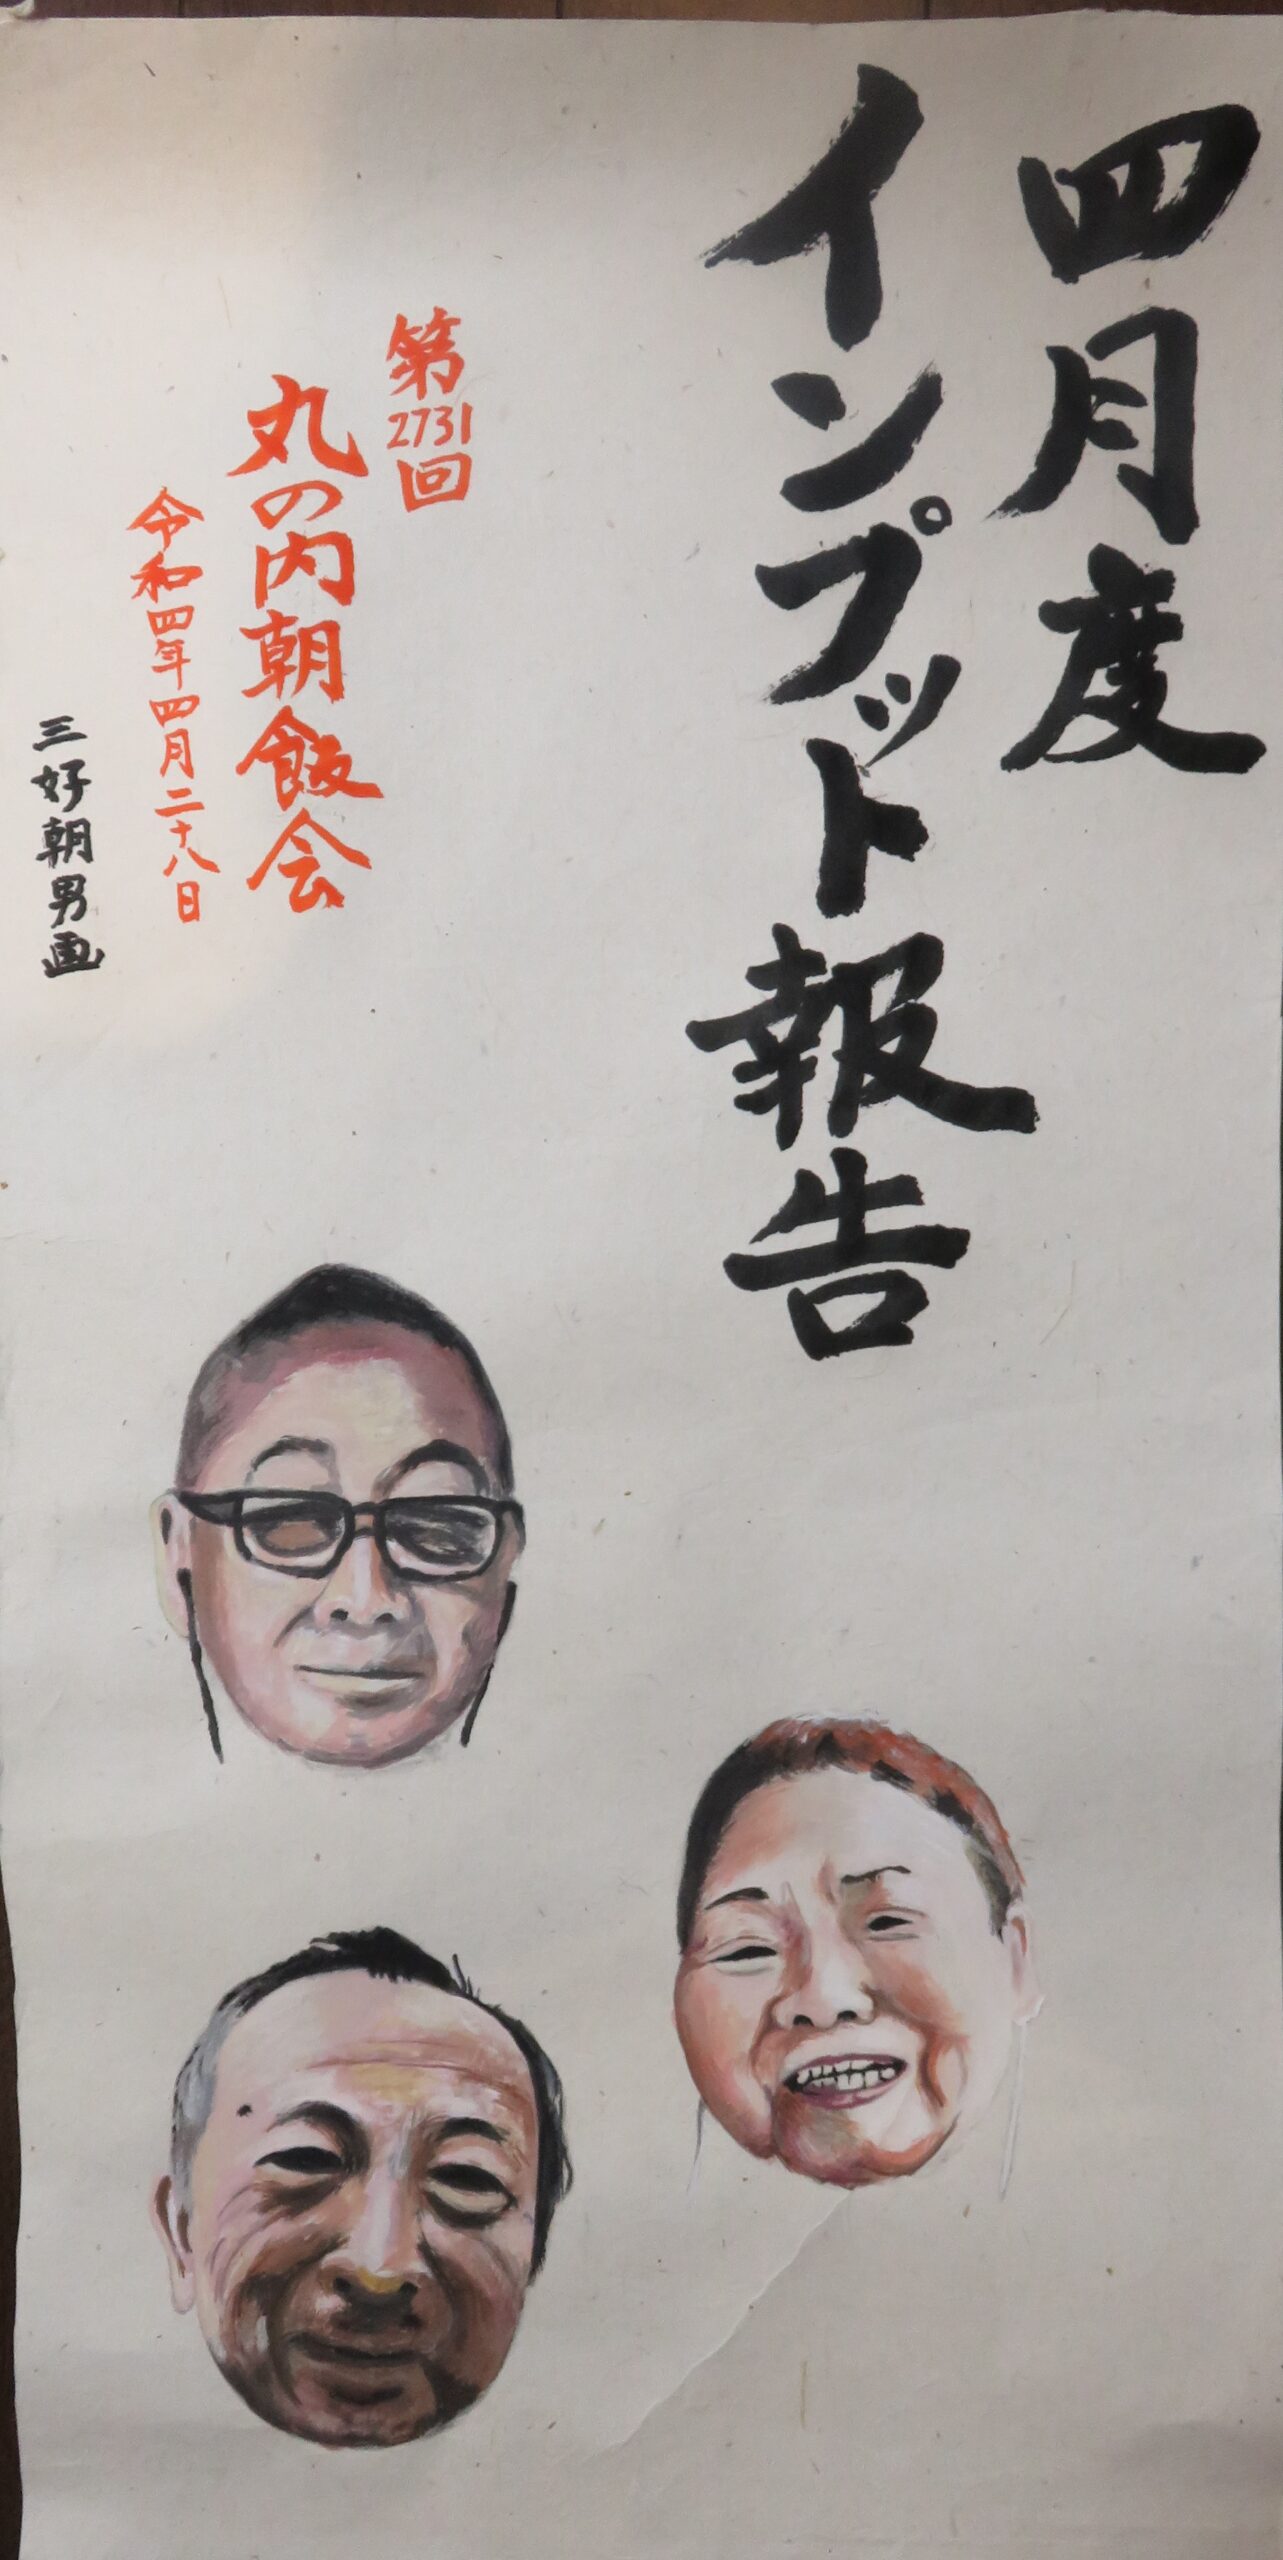 四月度
インプット報告
第2731回
丸の内朝飯会
令和四年四月二十八日
三好朝男画